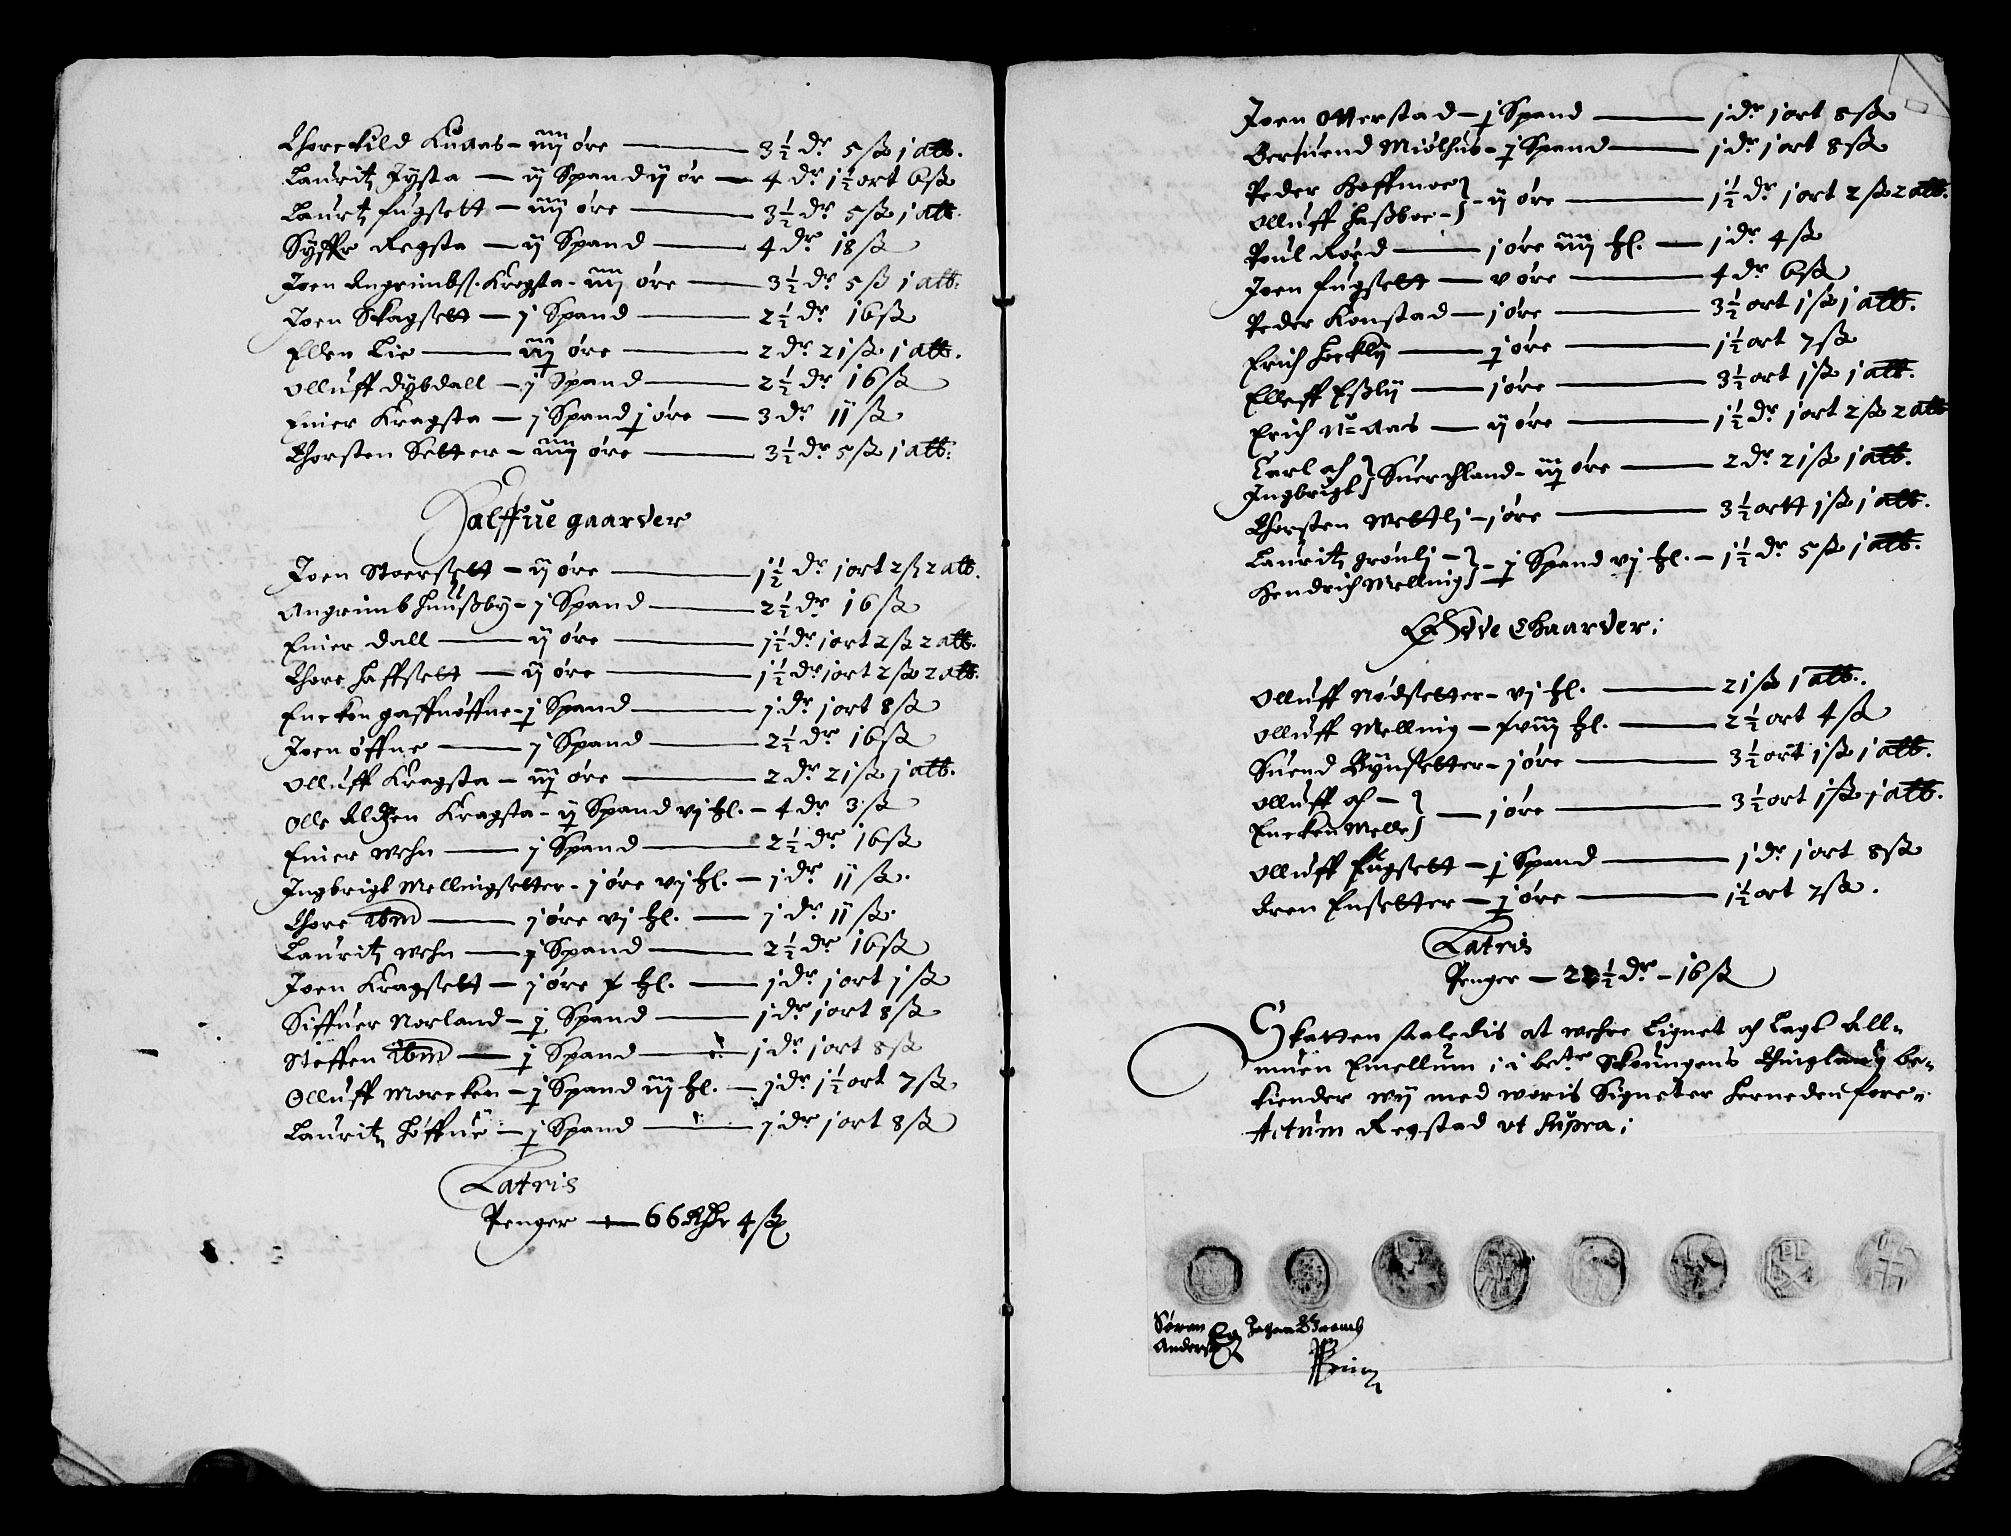 Thorekild Kuaas – iiij øre — 3½ dr 5 ß j alb.
Lauritz Jÿsta — ij Spand ij ør — 4 dr 1½ ort 6 ß
Laurtz fugsett — iiij øre — 3½ dr 5 ß j alb.
Sÿffr Regsta — ij Spand — 4 dr 18 ß
Joen Angrimbs. Kregsta – iiij øre — 3½ dr 5 ß j alb.
Joen Skagsett — j Spand — 2½ dr 16 ß
Ellen Lie — iij øre — 2 dr 21 ß j alb.
Olluff dÿbdall — j Spand — 2½ dr 16 ß
Einer Kragsta — j Spand j øre — 3 dr 11 ß
Thorsten Setter – iiij øre — 3½ dr 5 ß j alb.
Halffue gaarder
Joen Stoersett — ij øre — 1½ dr j ort 2 ß 2 alb.
Angrimb huußbÿ – j Spand — 2½ dr 16 ß
Einer dall — ij øre — 1½ dr j ort 2 ß 2 alb.
Thore haffsett — ij øre — 1½ dr j ort 2 ß 2 alb.
Encken gaffnøffne – j Spand — j dr j ort 8 ß
Joen øffne — j Spand — 2½ dr 16 ß
Olluff Kragsta — iij øre — 2 dr 21 ß j alb.
Olle Kragsta – ij Spand vj hl. – 4 dr 3 ß
Einer Wehn — j Spand — 2½ dr 16 ß
Ingbrigt Mellingsetter – j øre vj hl. — j dr 11 ß.
Thore ibm — j øre vj hl. — j dr 11 ß.
Lauritz Wehn — j Spand — 2½ dr 16 ß
Joen Kragsett — j øre hl. — j dr j ort j ß
Siffuer Norland — j Spand — j dr j ort 8 ß
Steffen ibm — j Spand — j dr j ort 8 ß
Olluff Morcken — j Spand iij hl. — j dr 1½ ort 7 ß
Lauritz høffue — j Spand — j dr j ort 8 ß
Latris
Penger — 66 Rdr 4 ß
Joen Otterstad — j Spand — j dr j ort 8 ß
Beruend Miølhus – j Spand — j dr j ort 8 ß
Peder hoffmoe
Olluff haßboe – ij øre — 1½ dr j ort 2 ß 2 alb.
Poul Røed — j øre iiij hl. — j dr 4 ß
Joen fugsett — v øre — 4 dr 6 ß
Peder Konstad — j øre — 3½ ort j ß j alb.
Erich Locklÿ — j øre — 1½ ort 7 ß
Elleff Eßlÿ — j øre — 3½ ort j ß j alb.
Erich Aas — ij øre — 1½ dr j ort 2 ß 2 alb
Carl och
Ingbrigt Suerchland – iij øre — 2 dr 21 ß j alb.
Thorsten Mettlj – j øre — 3½ ortt j ß j alb.
Lauritz grønlj —
Hendrich Melling — j Spand vj hl. – 1½ dr 5 ß j alb.
Ødde Ghaarder;
Olluff Nødsetter – vj hl. — 21 ß j alb.
Olluff Melling — viij hl. — 2½ ort 4 ß
Suend Bÿnsetter – j øre — 3½ ort j ß j alb.
Olluff och —
Encken Melle — j øre — 3½ ort j ß j alb.
Olluff fugsett — j Spand — j dr j ort 8 ß
Even Ensetter — j øre — 1½ ort 7 ß.
Latris
Penger — ½ dr – 16 ß
Skatten saaledis at wehre Lignet och Lagt All-
muen Emellum i Skouugens Thinglaug be-
kiender wÿ med woris Signeter herneden fore
Actum Regstad ut supra;
Søren
Anders